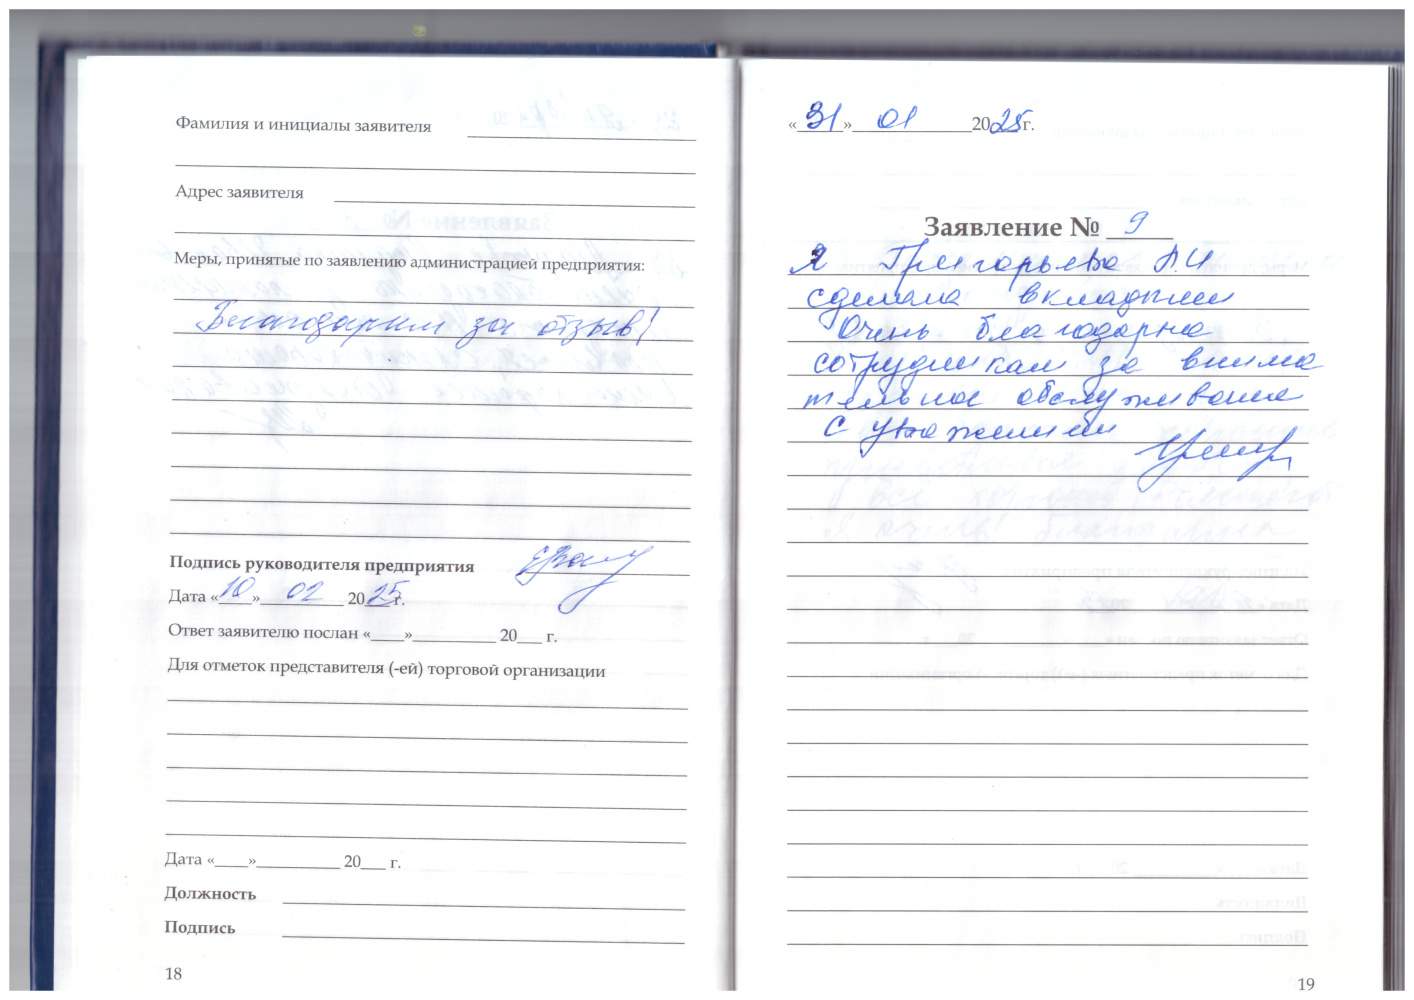 Фамилия и инициалы заявителя
Адрес заявителя
Меры, принятые по заявлению администрацией предприятия:
Благодарим за отзыв!
Подпись руководителя предприятия
Дата «10» 02 2025г.
Ответ заявителю послан «____»__________ 20___ г.
Для отметок представителя (-ей) торговой организации
Дата «____»__________ 20___ г.
Должность
Подпись
18
«31» 01 2025г.
Заявление № 9
Я Григорьева А.И
сделала вкладыши
Очень благодарна
сотрудникам за внима
тельное обслуживание
С уважением
19